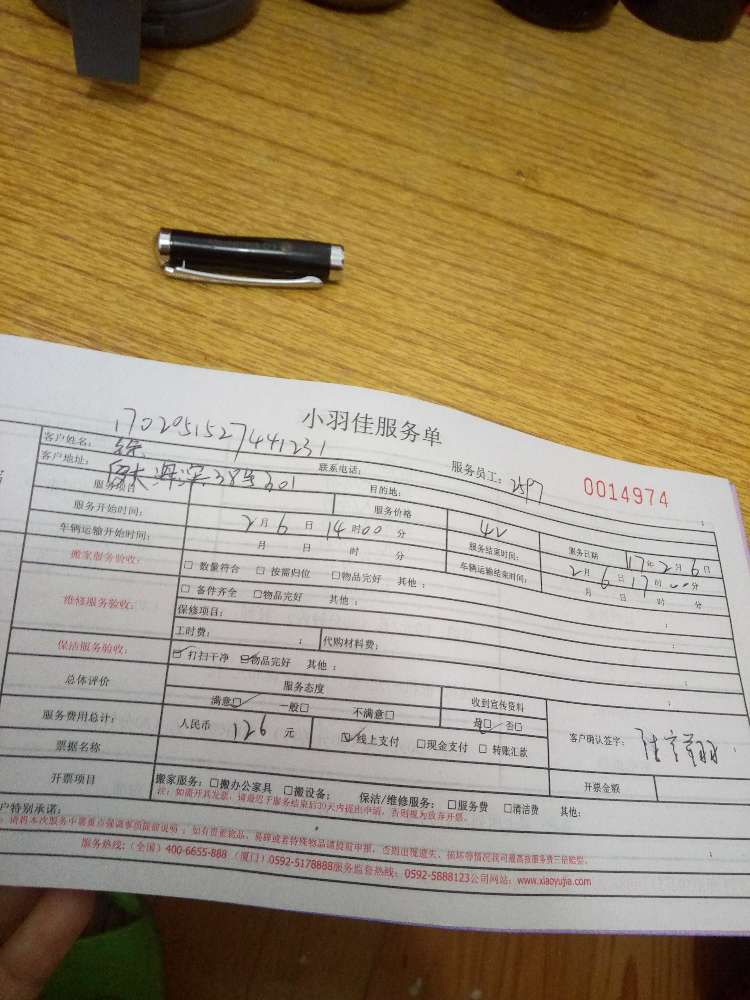 小羽佳服务单
1702051527441231
客户姓名： 联系电话： 服务员工：2597 0014974
客户地址： 厦大海滨38号301 目的地：
服务项目 服务价格 42 服务日期 17年2月6日
服务开始时间： 2月6日14时00分 服务结束时间： 2月6日17时00分
车辆运输开始时间： 月 日 时 分 车辆运输结束时间： 月 日 时 分
搬家服务验收： □ 数量符合 □ 按需归位 □物品完好 其他：
维修服务验收： □ 备件齐全 □物品完好 其他：
保修项目： ；
工时费： ； 代购材料费： ；
保洁服务验收： ☑ 打扫干净 ☑物品完好 其他：
总体评价 服务态度 收到宣传资料
满意☑ 一般□ 不满意□ 是☑ 否□
服务费用总计： 人民币 126 元 ☑线上支付 □现金支付 □ 转账汇款 客户确认签字：
票据名称 开票金额
开票项目 搬家服务：□搬办公家具 □搬设备； 保洁/维修服务：□服务费 □清洁费 其他：
注：如需开具发票，请最迟于服务结束后30天内提出申请，否则视为放弃开票。
户特别承诺：
：请将本次服务中需重点强调事项提前说明；如有贵重物品、易碎或者特殊物品请提前申报，否则出现遗失、损坏等情况我司最高按服务费三倍赔偿。
服务热线：（全国）400-6655-888 （厦门）0592-5178888服务监督热线：0592-5888123公司网站：www.xiaoyujie.com